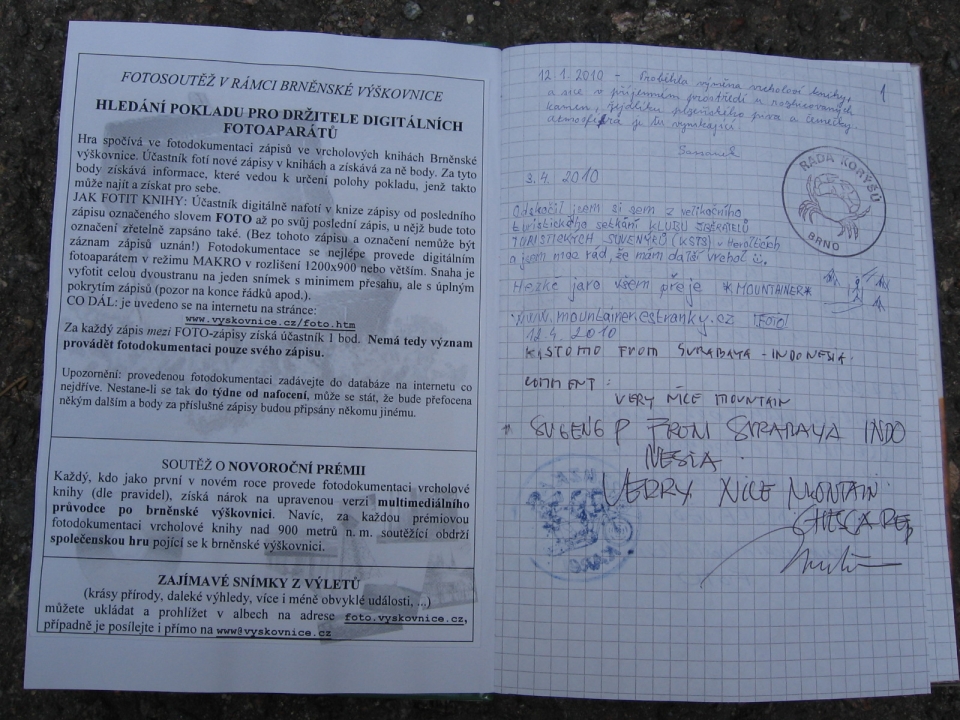 FOTOSOUTĚŽ V RÁMCI BRNĚNSKÉ VÝŠKOVNICE
HLEDÁNÍ POKLADU PRO DRŽITELE DIGITÁLNÍCH
FOTOAPARÁTŮ
Hra spočívá ve fotodokumentaci zápisů ve vrcholových knihách Brněnské
výškovnice. Účastník fotí nové zápisy v knihách a získává za ně body. Za tyto
body získává informace, které vedou k určení polohy pokladu, jenž takto
může najít a získat pro sebe.
JAK FOTIT KNIHY: Účastník digitálně nafotí v knize zápisy od posledního
zápisu označeného slovem FOTO až po svůj poslední zápis, u nějž bude toto
označení zřetelně zapsáno také. (Bez tohoto zápisu a označení nemůže být
záznam zápisů uznán!) Fotodokumentace se nejlépe provede digitálním
fotoaparátem v režimu MAKRO v rozlišení 1200x900 nebo větším. Snaha je
vyfotit celou dvoustranu na jeden snímek s minimem přesahu, ale s úplným
pokrytím zápisů (pozor na konce řádků apod.).
CO DÁL: je uvedeno se na internetu na stránce:
www.vyskovnice.cz/foto.htm
Za každý zápis mezi FOTO-zápisy získá účastník 1 bod. Nemá tedy význam
provádět fotodokumentaci pouze svého zápisu.
Upozornění: provedenou fotodokumentaci zadávejte do databáze na internetu co
nejdříve. Nestane-li se tak do týdne od nafocení, může se stát, že bude přefocena
někým dalším a body za příslušné zápisy budou připsány někomu jinému.
SOUTĚŽ O NOVOROČNÍ PRÉMII
Každý, kdo jako první v novém roce provede fotodokumentaci vrcholové
knihy (dle pravidel), získá nárok na upravenou verzi multimediálního
průvodce po brněnské výškovnici. Navíc, za každou prémiovou
fotodokumentaci vrcholové knihy nad 900 metrů n. m. soutěžící obdrží
společenskou hru pojící se k brněnské výškovnici.
ZAJÍMAVÉ SNÍMKY Z VÝLETŮ
(krásy přírody, daleké výhledy, více i méně obvyklé události, ...)
můžete ukládat a prohlížet v albech na adrese foto.vyskovnice.cz,
případně je posílejte i přímo na www@vyskovnice.cz
1
12.1.2010 - Proběhla výměna vrcholové knihy,
a sice v příjemném prostředí u
kamen, plzeňského piva a
atmosféra je tu vynikající.
RADA KORÝŠŮ
BRNO
3.4. 2010
Odskočil jsem si sem z velikočního
turistického setkání KLUBU SBĚRATELŮ
TURISTICKÝCH SUVENÝRŮ (KSTS) v Herolticích
a jsem moc rád, že mám další vrchol
Hezké jaro všem přeje *MOUNTAINER*
www.mountainer.estranky.cz FOTO
12.4. 2010
KISTOMO FROM SURABAYA - INDONESIA.
COMMENT :
VERY NICE MOUNTAIN
SUGENG P FROM SURABAYA INDO
NESIA.
VERRY NICE MONTAIN.